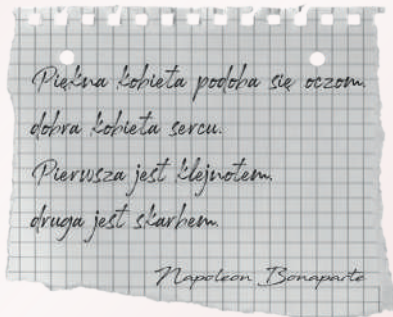 Piękna kobieta podoba się oczom.
dobra kobieta sercu.
Pierwsza jest klejnotem.
druga jest skarbem.
Napoleon Bonaparte